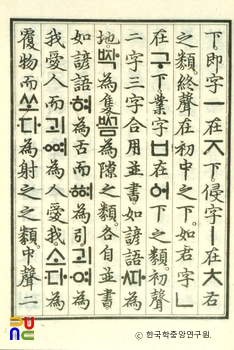 下。即字ㅡ在ㅈ下。侵字ㅣ在ㅊ右
之類。終聲在初中之下。如君字ㄴ
在구下。業字ㅂ在어下之類。初聲
二字三字合用並書。如諺語ᄯᅡ為
地。ᄧᅡᆨ為隻。ᄢᅳᆷ為隙之類。各自並書。
如諺語혀為舌而ᅘᅧ為引。괴여為
我愛人而괴ᅇᅧ為人愛我。소다為
覆物而쏘다為射之之類。中聲二
ⓒ 한국학중앙연구원.